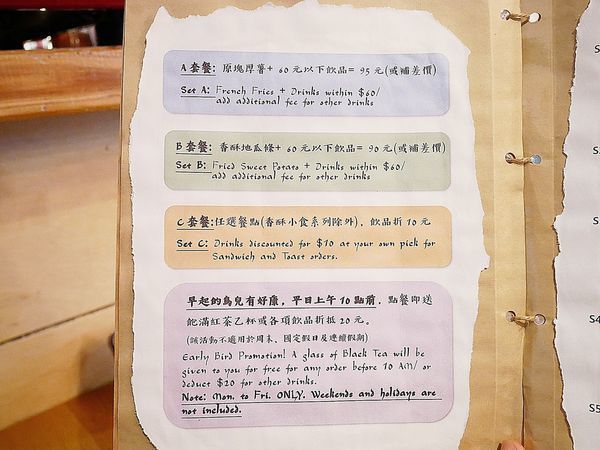 A 套餐: 原塊厚薯+ 60 元以下飲品= 95 元(或補差價)
Set A: French Fries + Drinks within $60/
add additional fee for other drinks
B 套餐: 香酥地瓜條+ 60 元以下飲品= 90 元(或補差價)
Set B: Fried Sweet Potato + Drinks within $60/
add additional fee for other drinks
C 套餐:任選餐點(香酥小食系列除外), 飲品折 10 元
Set C: Drinks discounted for $10 at your own pick for
Sandwich and Toast orders.
早起的鳥兒有好康, 平日上午 10 點前, 點餐即送
飽滿紅茶乙杯或各項飲品折抵 20 元。
(該活動不適用於周末、國定假日及連續假期)
Early Bird Promotion! A glass of Black Tea will be
given to you for free for any order before 10 AM/ or
deduct $20 for other drinks.
Note: Mon. to Fri. ONLY. Weekends and holidays are
not included.
S4
S5